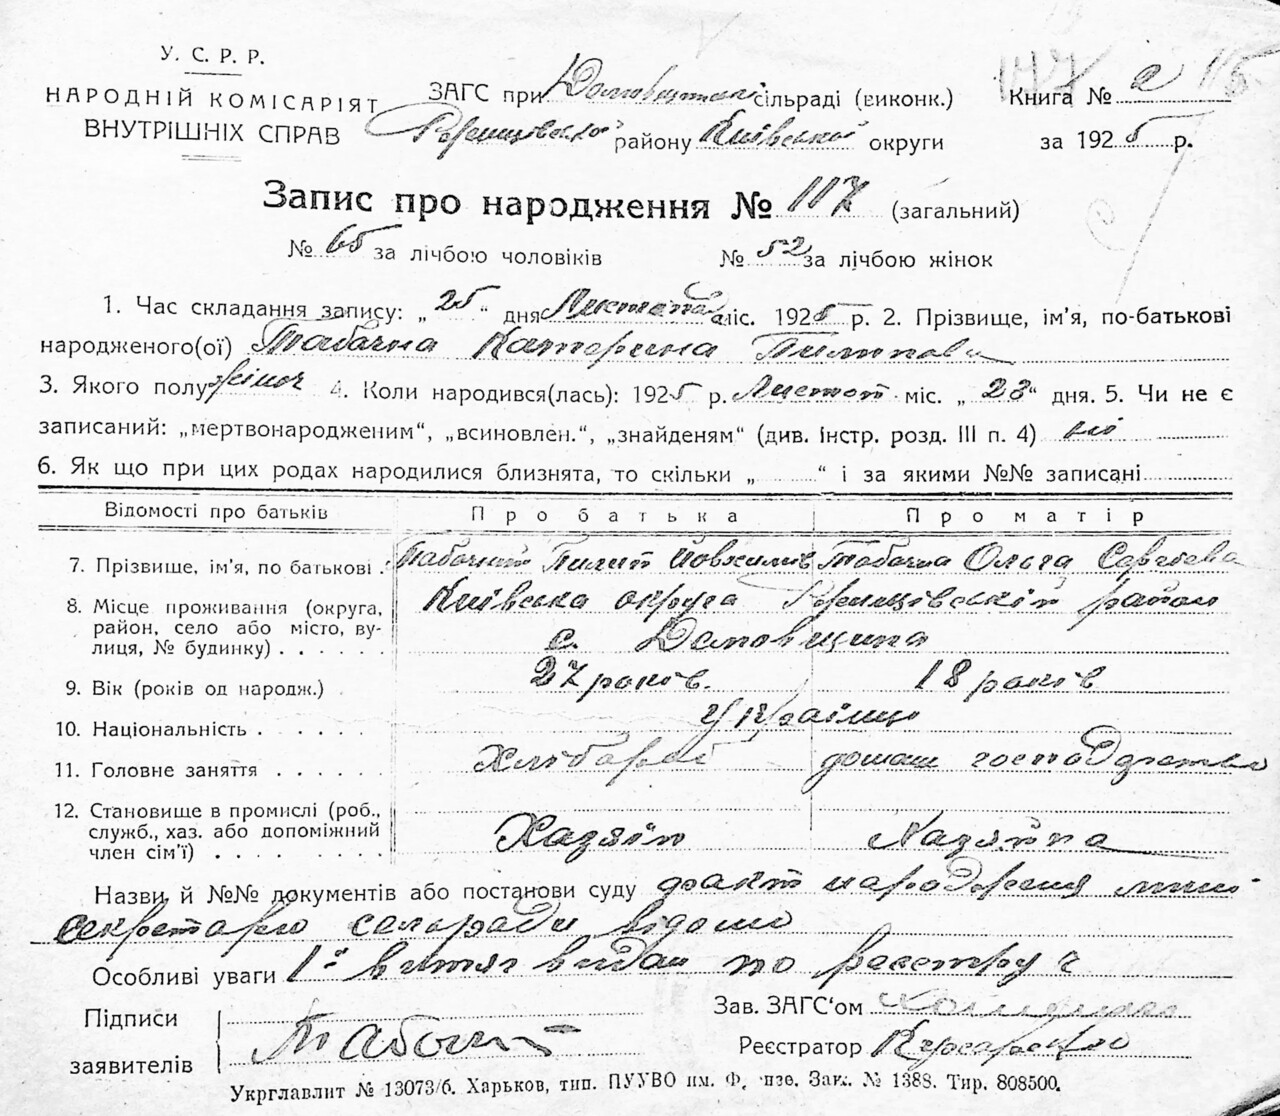 117 115
У. С. Р. Р.
НАРОДНІЙ КОМІСАРІЯТ
ВНУТРІШНІХ СПРАВ
ЗАГС при сільраді (виконк.)
району Київської округи
Книга № 2
за 1925 р.
Запис про народження № 117 (загальний)
№ 65 за лічбою чоловіків № 52 за лічбою жінок
1. Час складання запису: „25“ дня Листопада міс. 1925 р. 2. Прізвище, ім'я, по-батькові
народженого(ої) Табачна Катерина Пилипова
3. Якого полу жіноч 4. Коли народився(лась): 1925 р. Листоп міс. „23“ дня. 5. Чи не є
записаний: „мертвонародженим“, „всиновлен.“, „знайденям“ (див. інстр. розд. III п. 4) ні
6. Як що при цих родах народилися близнята, то скільки „ “ і за якими №№ записані
Відомості про батьків Про батька Про матір
7. Прізвище, ім'я, по батькові Табачний Пилип Йовхимів Табачна Ольга
8. Місце проживання (округа, Київська округа район
район, село або місто, ву- с.
лиця, № будинку)
9. Вік (років од народж.) 27 років. 18 років
10. Національність Українці
11. Головне заняття Хлібороб домаш господарство
12. Становище в промислі (роб.,
служб., хаз. або допоміжний Хазяїн Хазяйка
член сім'ї)
Назви й №№ документів або постанови суду факт народження мині
секретарю сельради відомо
Особливі уваги 1й витяг видан по реєстру ч
Підписи
заявителів Табачний
Зав. ЗАГС'ом
Реєстратор
Укрглавлит № 13073/б. Харьков, тип. ПУУВО им. Фрунзе. Зак. № 1388. Тир. 808500.